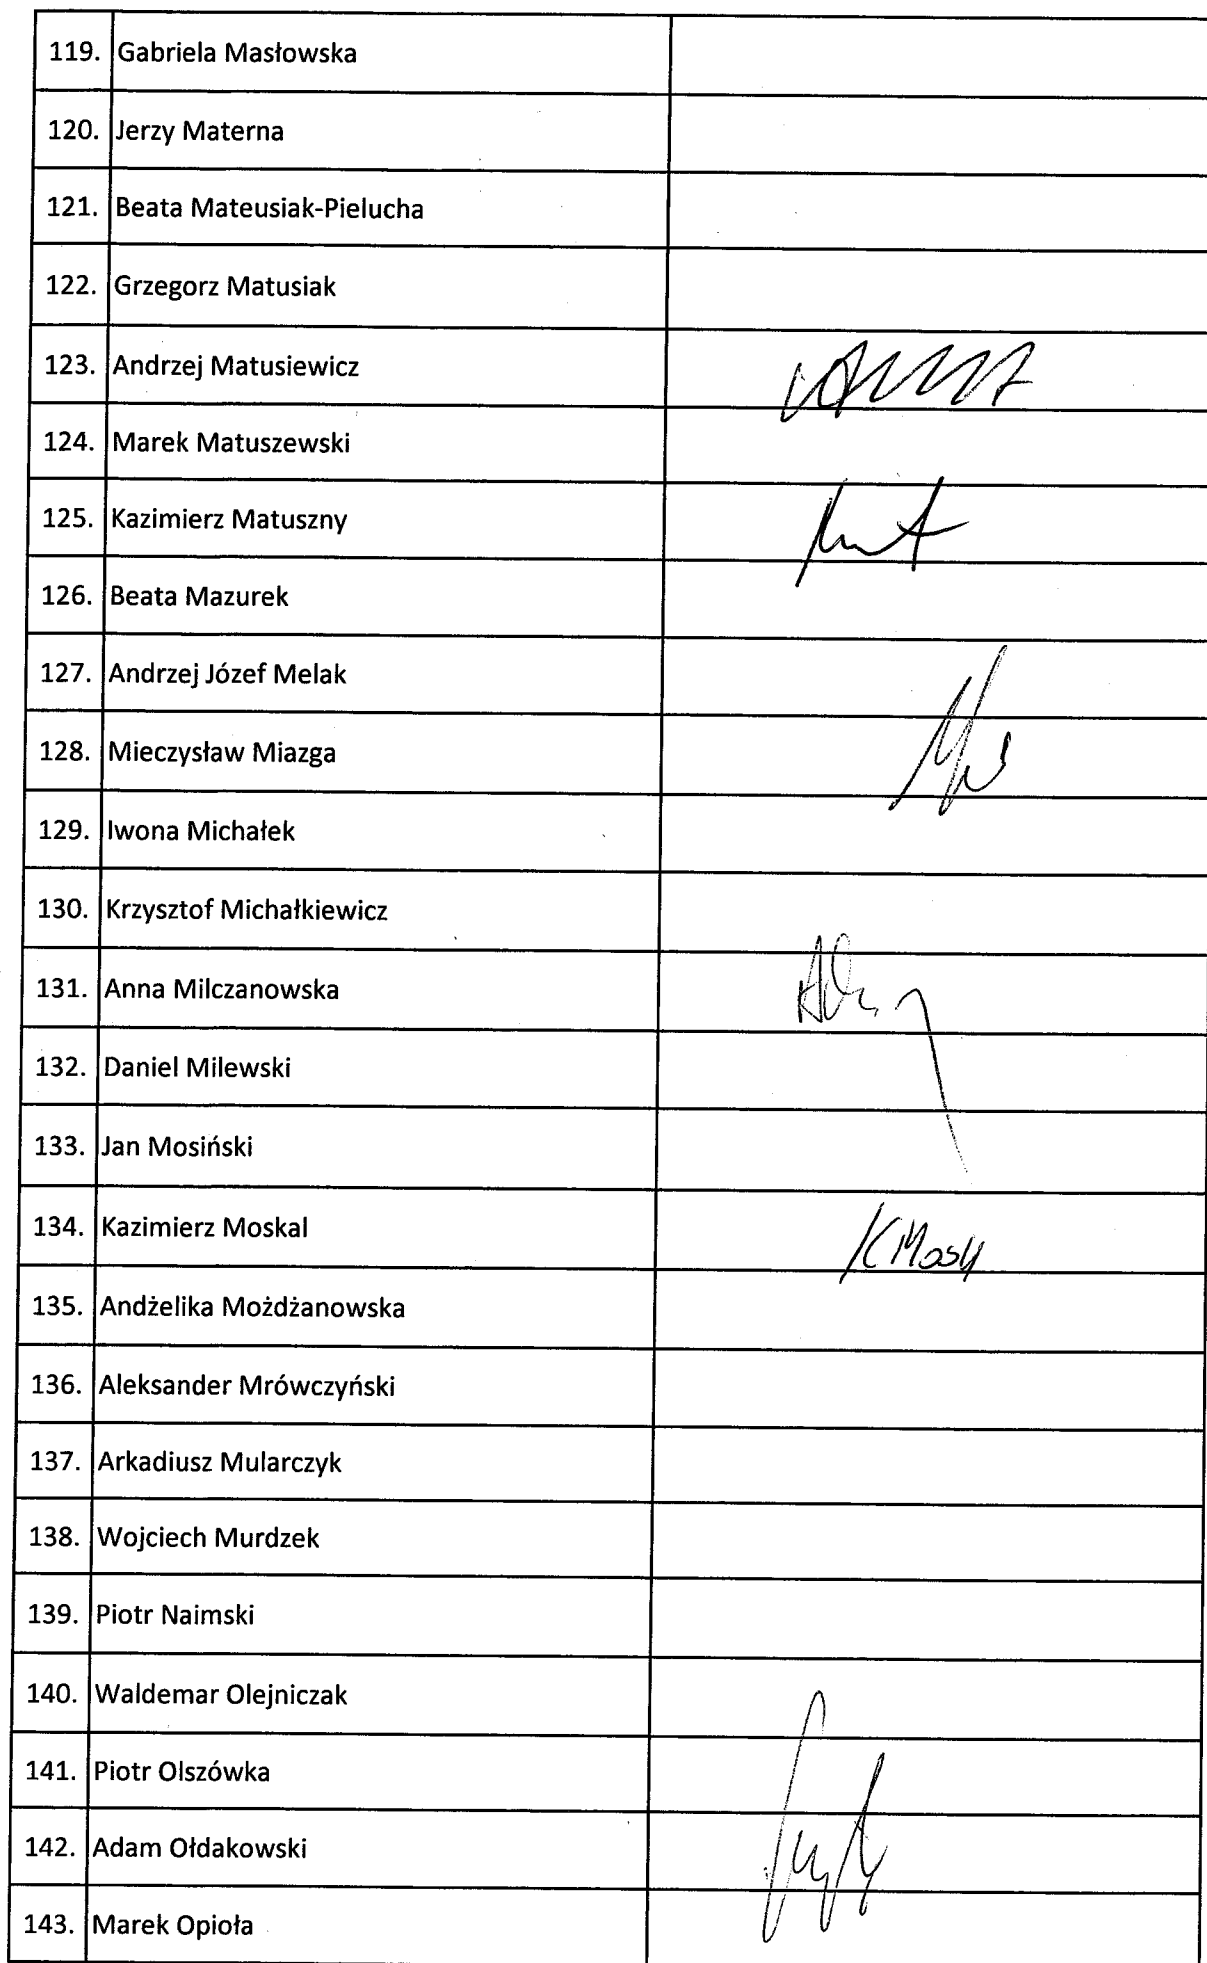 119. Gabriela Masłowska
120. Jerzy Materna
121. Beata Mateusiak-Pielucha
122. Grzegorz Matusiak
123. Andrzej Matusiewicz
124. Marek Matuszewski
125. Kazimierz Matuszny
126. Beata Mazurek
127. Andrzej Józef Melak
128. Mieczysław Miazga
129. Iwona Michałek
130. Krzysztof Michałkiewicz
131. Anna Milczanowska
132. Daniel Milewski
133. Jan Mosiński
134. Kazimierz Moskal
135. Andżelika Możdżanowska
136. Aleksander Mrówczyński
137. Arkadiusz Mularczyk
138. Wojciech Murdzek
139. Piotr Naimski
140. Waldemar Olejniczak
141. Piotr Olszówka
142. Adam Ołdakowski
143. Marek Opioła